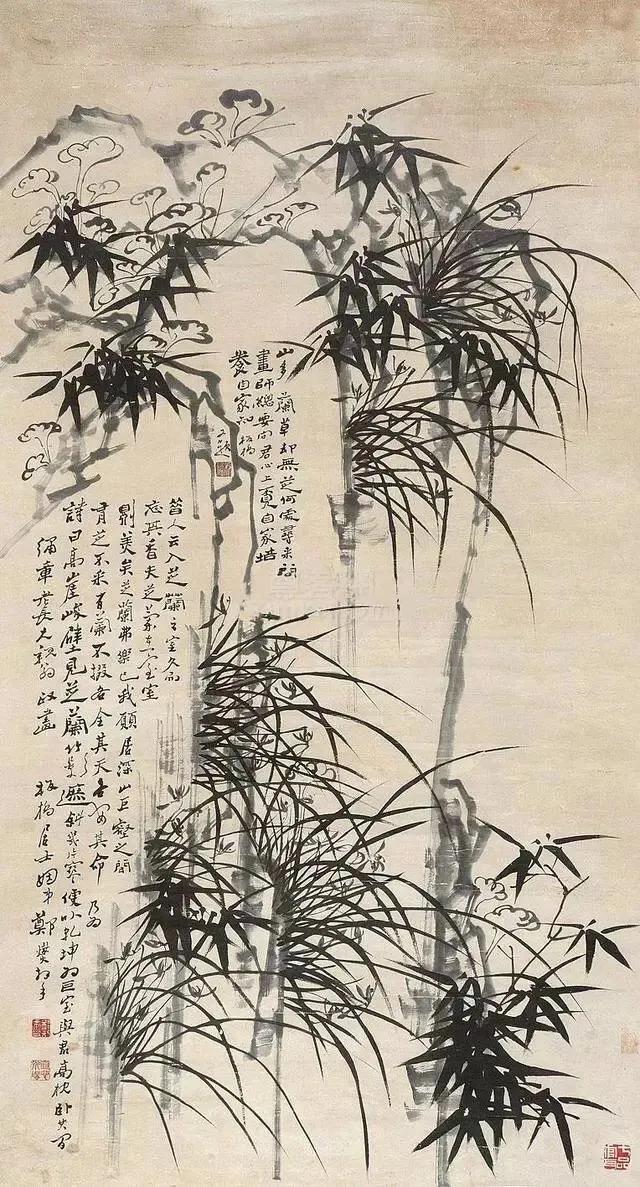 山多蘭草却無芝何處尋來問
畫師總要向君心上覓自家培
養自家知 板橋
又題
昔人云入芝蘭之室久而
忘其香夫芝蘭在室室
則美矣芝蘭弗樂也我願居深山巨壑之間
有芝不采有蘭不掇各全其天各安其命 乃為
詩曰高崖峻壁見芝蘭竹影遮斜幾片寒便以乾坤為巨室與君高枕臥其間
重老長兄親翁 政畫 板橋居士姻弟鄭燮拜手